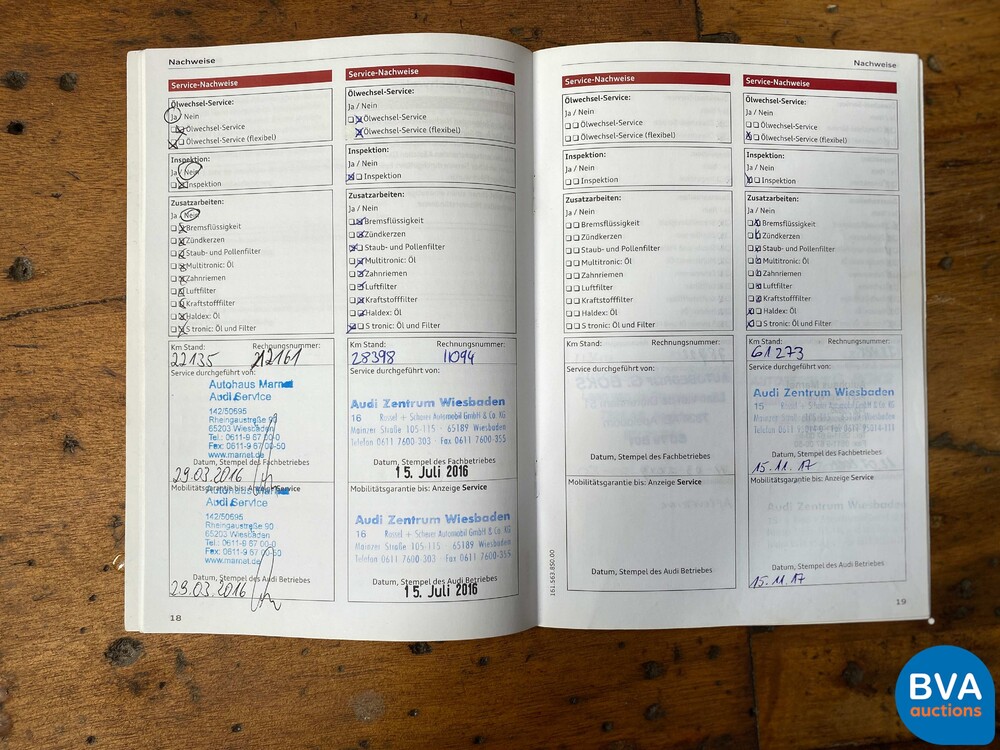 Nachweise
Service-Nachweise
Ölwechsel-Service:
Ja / Nein
Ölwechsel-Service
Ölwechsel-Service (flexibel)
Inspektion:
Ja / Nein
Inspektion
Zusatzarbeiten:
Ja / Nein
Bremsflüssigkeit
Zündkerzen
Staub- und Pollenfilter
Multitronic: Öl
Zahnriemen
Luftfilter
Kraftstofffilter
Haldex: Öl
S tronic: Öl und Filter
Km Stand: Rechnungsnummer:
22135 212161
Service durchgeführt von:
Autohaus Marnet
Audi Service
142/50695
Rheingaustraße
65203 Wiesbaden
Tel.: 0611-9 67 00-0
Fax: 0611-9 67 00-50
www.marnet.de
Datum, Stempel des Fachbetriebes
29.03.2016
Mobilitätsgarantie bis: Anzeige Service
Autohaus Marnet
Audi Service
142/50695
Rheingaustraße
65203 Wiesbaden
Tel.: 0611-9 67 00-0
Fax: 0611-9 67 00-50
www.marnet.de
Datum, Stempel des Audi Betriebes
29.03.2016
18
Service-Nachweise
Ölwechsel-Service:
Ja / Nein
Ölwechsel-Service
Ölwechsel-Service (flexibel)
Inspektion:
Ja / Nein
Inspektion
Zusatzarbeiten:
Ja / Nein
Bremsflüssigkeit
Zündkerzen
Staub- und Pollenfilter
Multitronic: Öl
Zahnriemen
Luftfilter
Kraftstofffilter
Haldex: Öl
S tronic: Öl und Filter
Km Stand: Rechnungsnummer:
28398 11094
Service durchgeführt von:
Audi Zentrum Wiesbaden
16 + Scherer Automobil GmbH & Co. KG
Mainzer Straße 105-115 · 65189 Wiesbaden
Telefon 0611 7600-303 · Fax 0611 7600-355
Datum, Stempel des Fachbetriebes
15. Juli 2016
Mobilitätsgarantie bis: Anzeige Service
Audi Zentrum Wiesbaden
16 + Scherer Automobil GmbH & Co. KG
Mainzer Straße 105-115 65189 Wiesbaden
Telefon 0611 7600-303 · Fax 0611 7600-355
Datum, Stempel des Audi Betriebes
15. Juli 2016
Service-Nachweise
Ölwechsel-Service:
Ja / Nein
Ölwechsel-Service
Ölwechsel-Service (flexibel)
Inspektion:
Ja / Nein
Inspektion
Zusatzarbeiten:
Ja / Nein
Bremsflüssigkeit
Zündkerzen
Staub- und Pollenfilter
Multitronic: Öl
Zahnriemen
Luftfilter
Kraftstofffilter
Haldex: Öl
S tronic: Öl und Filter
Km Stand: Rechnungsnummer:
Service durchgeführt von:
Datum, Stempel des Fachbetriebes
Mobilitätsgarantie bis: Anzeige Service
Datum, Stempel des Audi Betriebes
161.563.850.00
Nachweise
Service-Nachweise
Ölwechsel-Service:
Ja / Nein
Ölwechsel-Service
Ölwechsel-Service (flexibel)
Inspektion:
Ja / Nein
Inspektion
Zusatzarbeiten:
Ja / Nein
Bremsflüssigkeit
Zündkerzen
Staub- und Pollenfilter
Multitronic: Öl
Zahnriemen
Luftfilter
Kraftstofffilter
Haldex: Öl
S tronic: Öl und Filter
Km Stand: Rechnungsnummer:
61273
Service durchgeführt von:
Audi Zentrum Wiesbaden
15 + Scherer Automobil GmbH & Co. KG
Datum, Stempel des Fachbetriebes
15.11.17
Mobilitätsgarantie bis: Anzeige Service
Audi Zentrum Wiesbaden
Datum, Stempel des Audi Betriebes
15.11.17
19
BVA
auctions